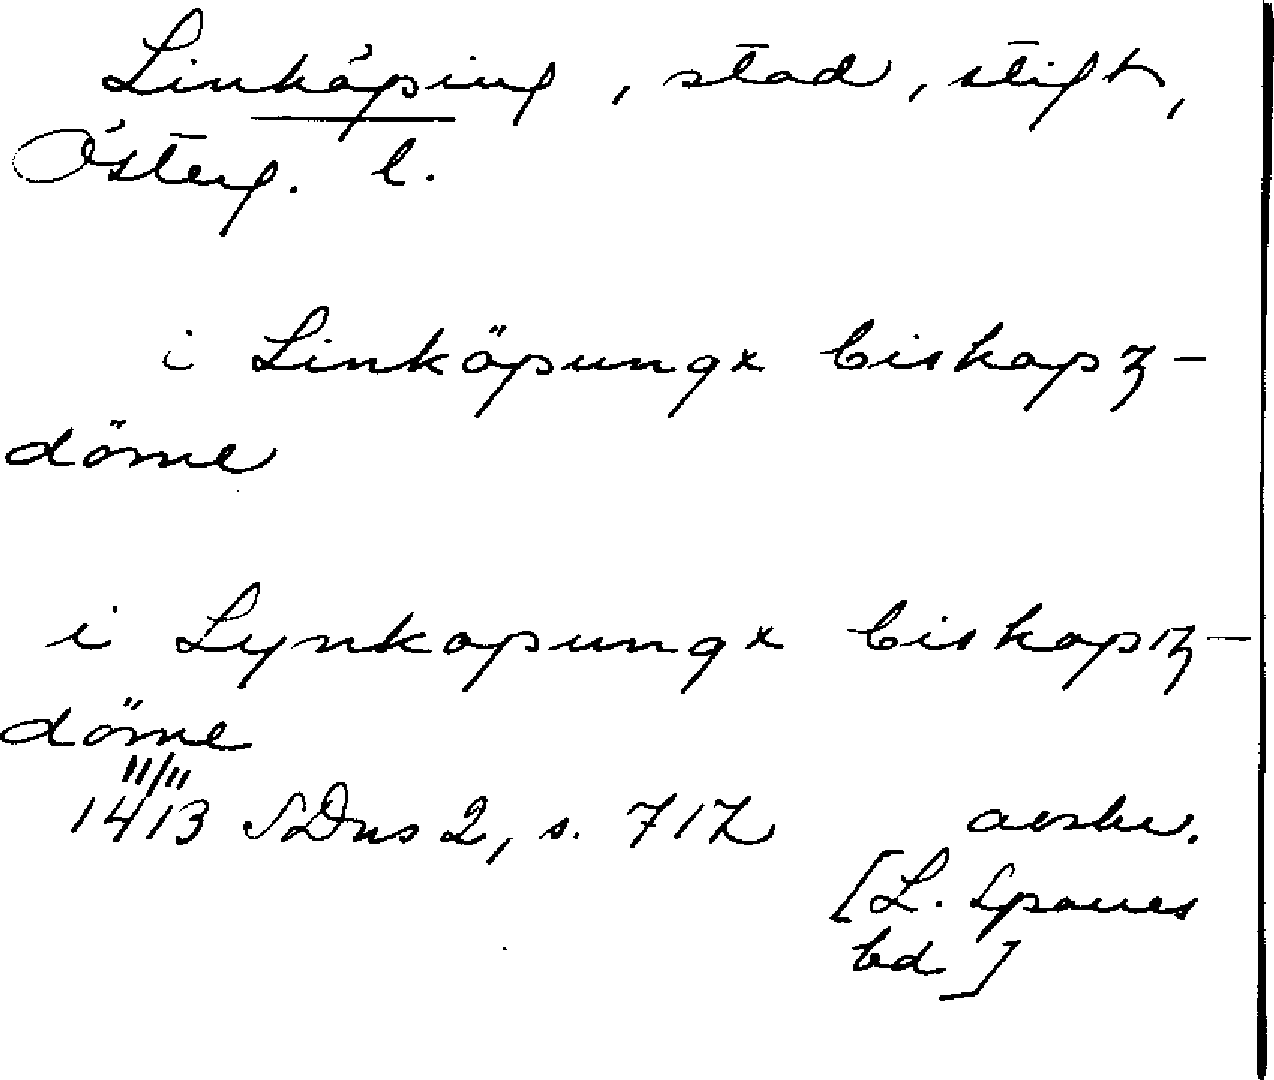 Linköping, stad, stift,
Österg. l.
i Linköpungx biskapz-
döme
i Lynkapungx biskapz-
döme
11/11
1413 SDns 2, s. 717 avskr.
[L. Sparres
bd]